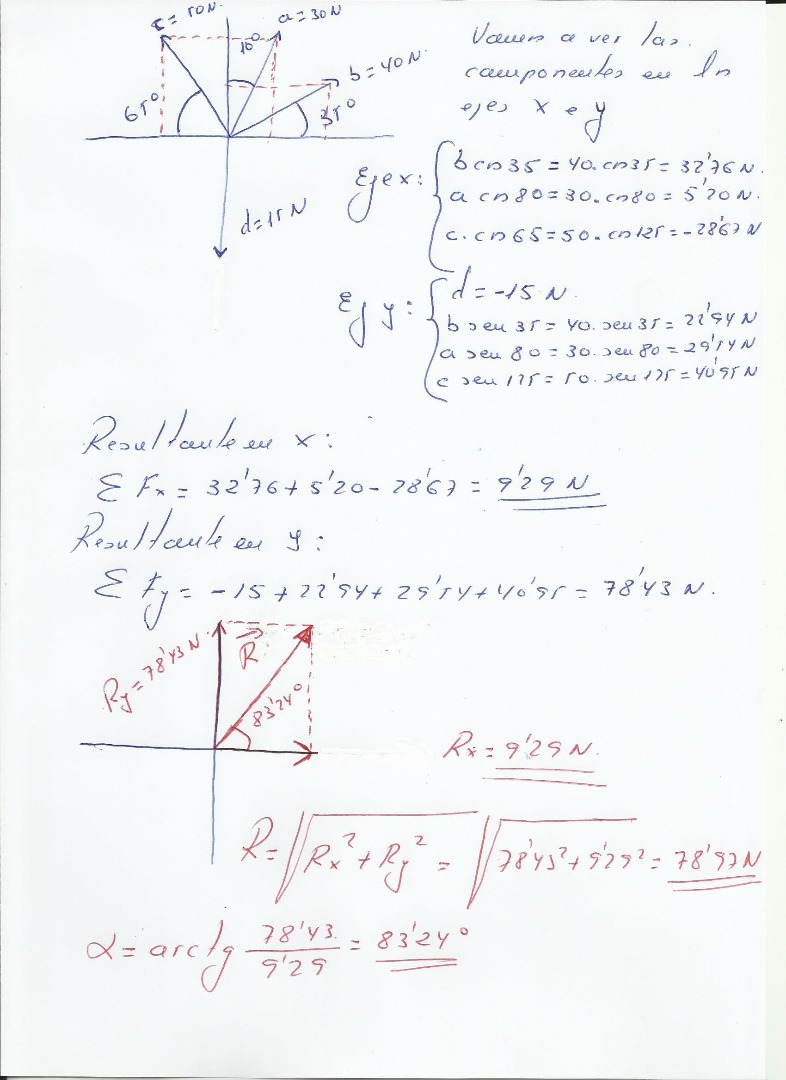 c = 50 N
a = 30 N
10°
b = 40 N.
65°
35°
d = 15 N
Vamos a ver las
componentes en los
ejes x e y
Eje x:
b cos 35 = 40. cos 35 = 32'76 N.
a cos 80 = 30. cos 80 = 5'20 N.
c. cos 65 = 50. cos 125 = -28'67 N
Ej y:
d = -15 N.
b sen 35 = 40. sen 35 = 22'94 N
a sen 80 = 30. sen 80 = 29'54 N
c sen 125 = 50. sen 125 = 40'95 N
Resultante en x:
Σ Fx = 32'76 + 5'20 - 28'67 = 9'29 N
Resultante en y:
Σ Fy = -15 + 22'94 + 29'54 + 40'95 = 78'43 N.
Ry = 78'43 N
R
83'24°
Rx = 9'29 N.
R = √Rx² + Ry² = √78'43² + 9'29² = 78'97 N
α = arctg 78'43 / 9'29 = 83'24°